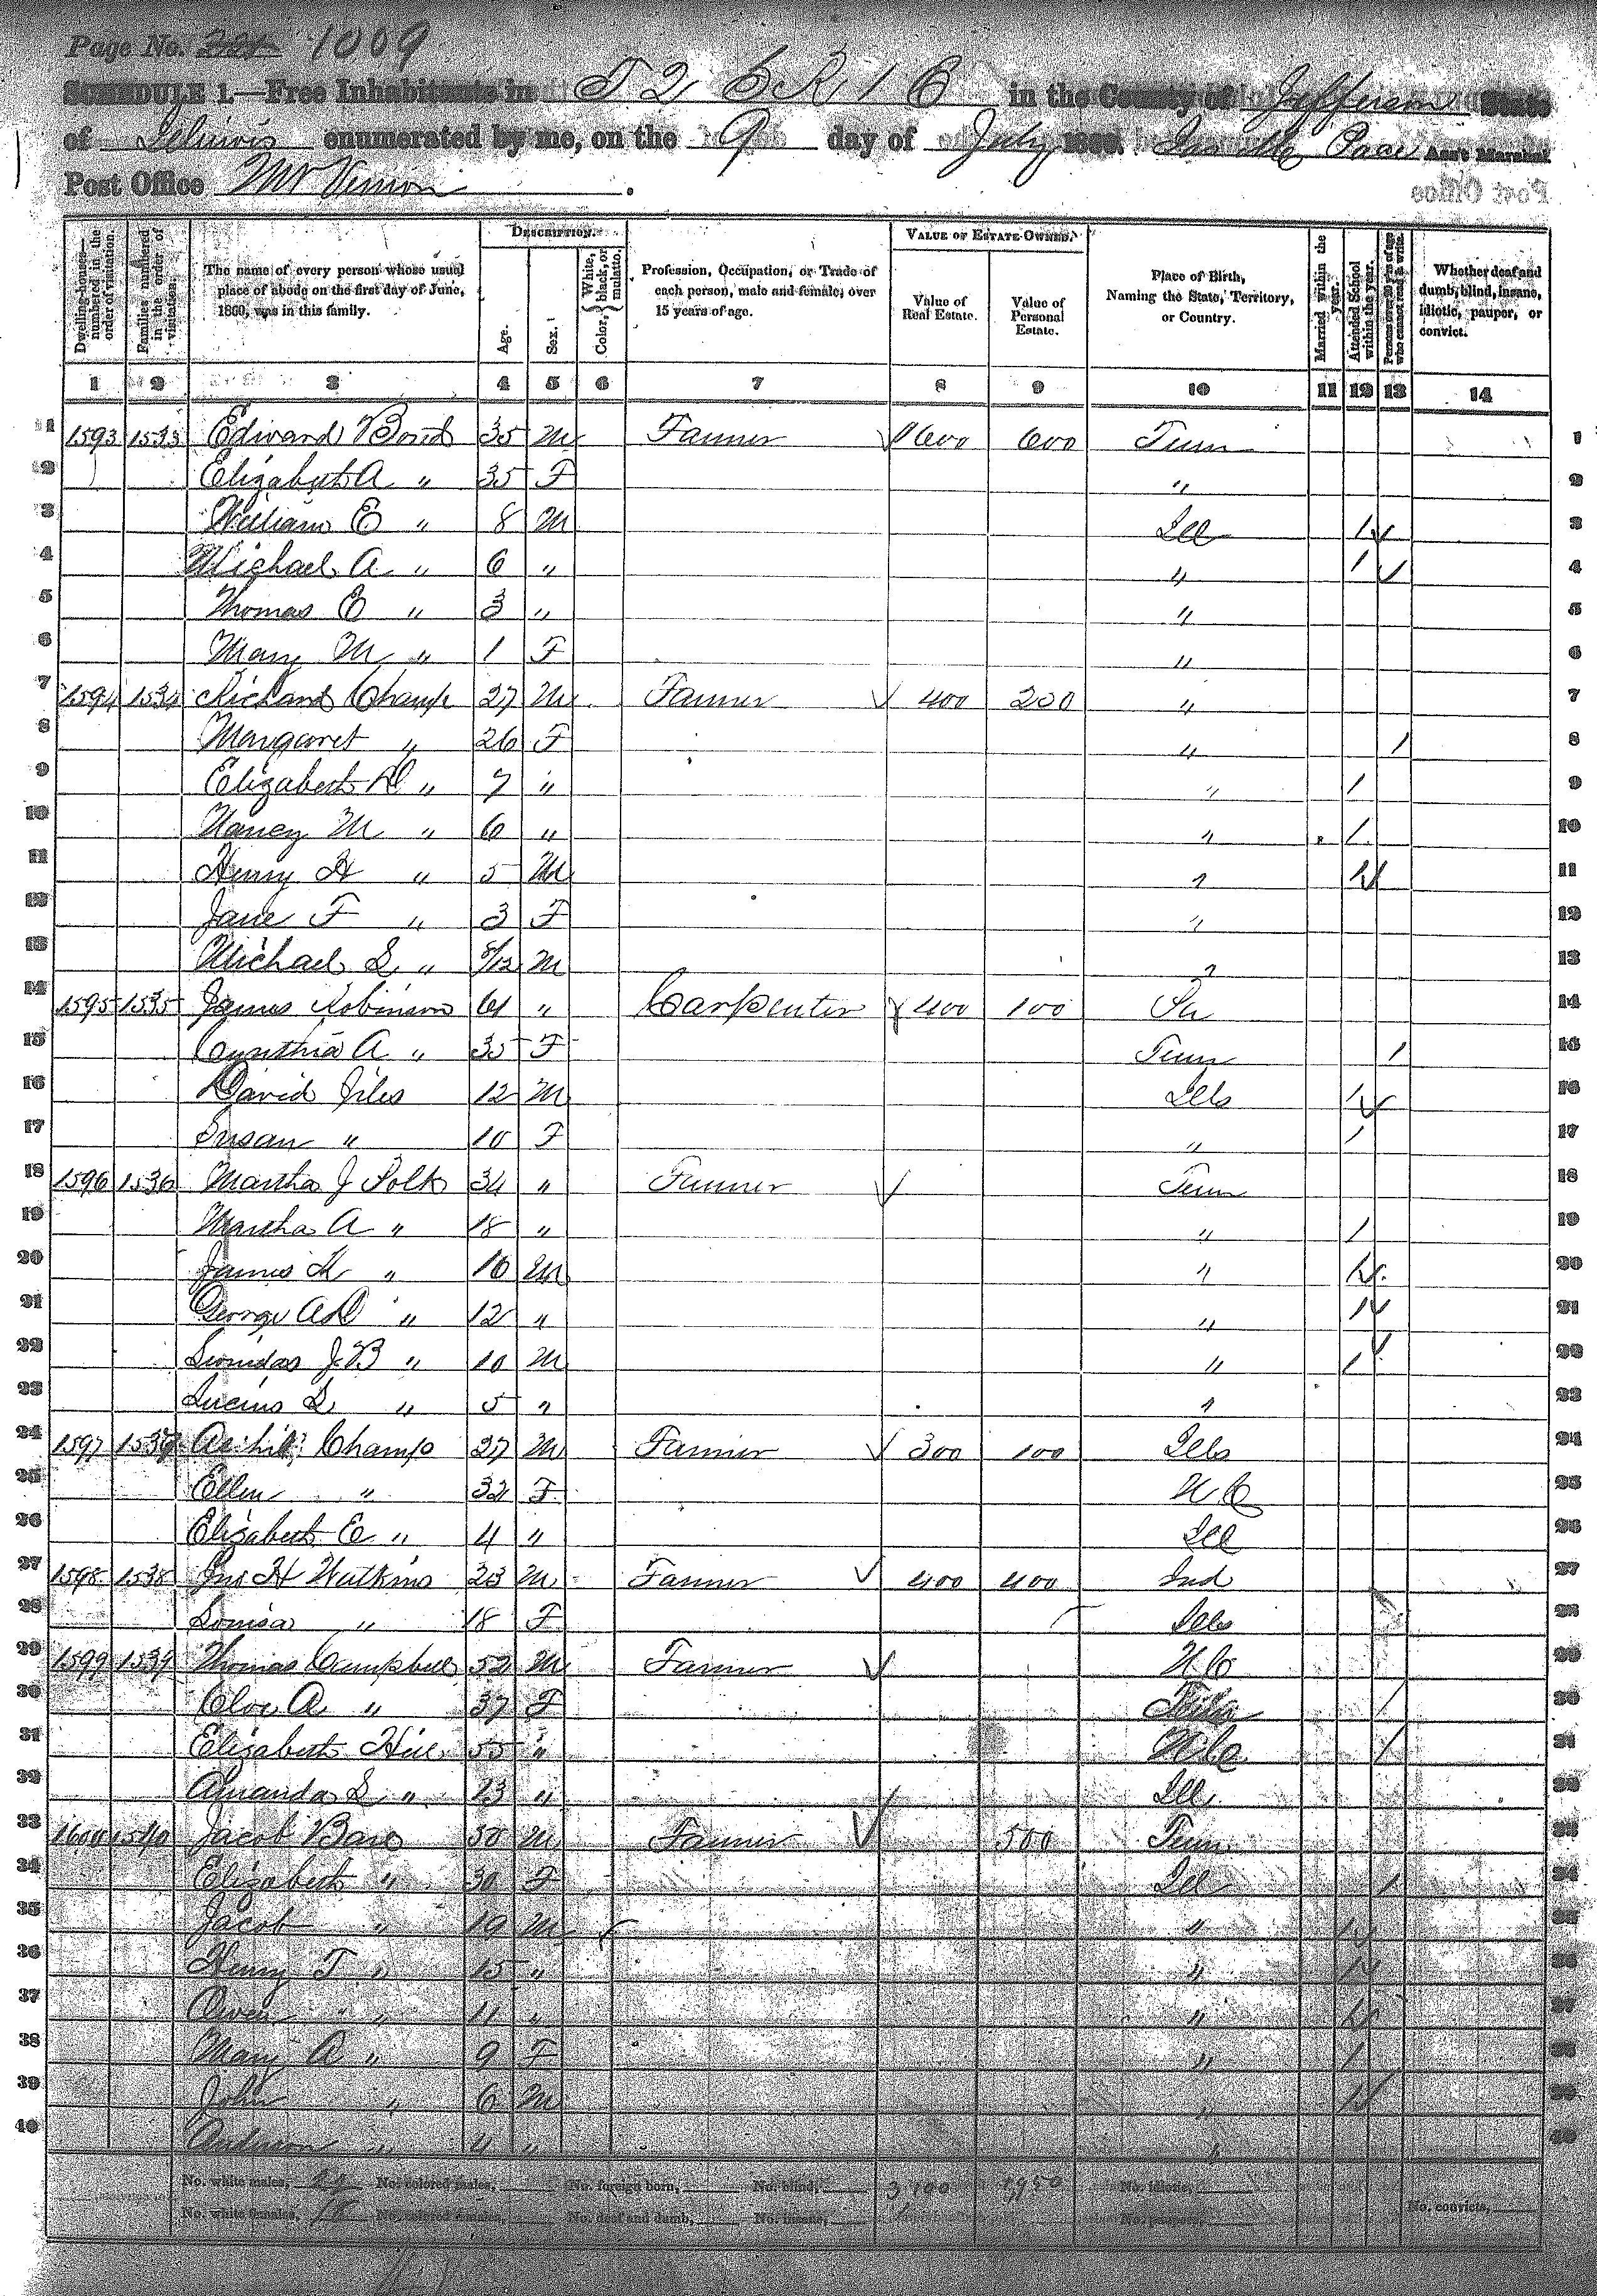 Page No. 1009
SCHEDULE 1.—Free Inhabitants in T 2 S R 1 E in the County of Jefferson State
of Illinois enumerated by me, on the 9 day of July 1860. Pace Ass't Marshal
Post Office Mt Vernon.
Dwelling-houses—numbered in the order of visitation.
Families numbered in the order of visitation.
The name of every person whose usual place of abode on the first day of June, 1860, was in this family.
DESCRIPTION.
Age.
Sex.
Color, {White, black, or mulatto.
Profession, Occupation, or Trade of each person, male and female, over 15 years of age.
VALUE OF ESTATE OWNED.
Value of Real Estate.
Value of Personal Estate.
Place of Birth, Naming the State, Territory, or Country.
Married within the year.
Attended School within the year.
Persons over 20 y'rs of age who cannot read & write.
Whether deaf and dumb, blind, insane, idiotic, pauper, or convict.
1 2 3 4 5 6 7 8 9 10 11 12 13 14
1 1593 1533 Edward Bond 35 M Farmer 1600 600 Tenn 1
2 Elizabeth A " 35 F " 2
3 William E " 8 M Ill 1 3
4 Michael A " 6 " " 1 4
5 Thomas E " 3 " " 5
6 Mary M " 1 F " 6
7 1594 1534 Richard Champ 27 M Farmer 400 200 " 7
8 Margaret " 26 F " 1 8
9 Elizabeth " 7 " " 1 9
10 Nancy M " 6 " " 1 10
11 Henry H " 5 M " 1 11
12 Jane F " 3 F " 12
13 Michael S " 8/12 M " 13
14 1595 1535 James Robinson 61 " Carpenter 400 100 14
15 Cynthia A " 35 F Tenn 1 15
16 David Jiles 12 M Ills 1 16
17 Susan " 10 F " 1 17
18 1596 1536 Martha J Polk 34 " Farmer Tenn 18
19 Martha A " 18 " " 1 19
20 James K " 16 M " 1 20
21 George " 12 " " 1 21
22 Leonidas J B " 10 M " 1 22
23 Lucius L " 5 " " 23
24 1597 1537 Champ 27 M Farmer 300 100 Ills 24
25 Ellen " 32 F N C 25
26 Elizabeth E " 4 " Ill 26
27 1598 1538 Jno H Watkins 23 M Farmer 400 400 Ind 27
28 Louisa " 18 F Ills 28
29 1599 1539 Thomas Campbell 52 M Farmer N C 29
30 Cloe A " 37 F 1 30
31 Elizabeth Hill 55 " N C 1 31
32 Amanda S " 23 " Ill 32
33 1600 1540 Jacob Bare 50 M Farmer 500 Tenn 33
34 Elizabeth " 30 F Ill 1 34
35 Jacob " 19 M " 1 35
36 Henry T " 15 " " 1 36
37 Owen " 11 " " 1 37
38 Mary A " 9 F " 1 38
39 John " 6 M " 1 39
40 Anderson " 4 " " 40
No. white males, No. colored males, No. foreign born, No. blind, 3100 1950 No. idiotic,
No. white females, 18 No. colored females, No. deaf and dumb, No. insane, No. paupers, No. convicts,